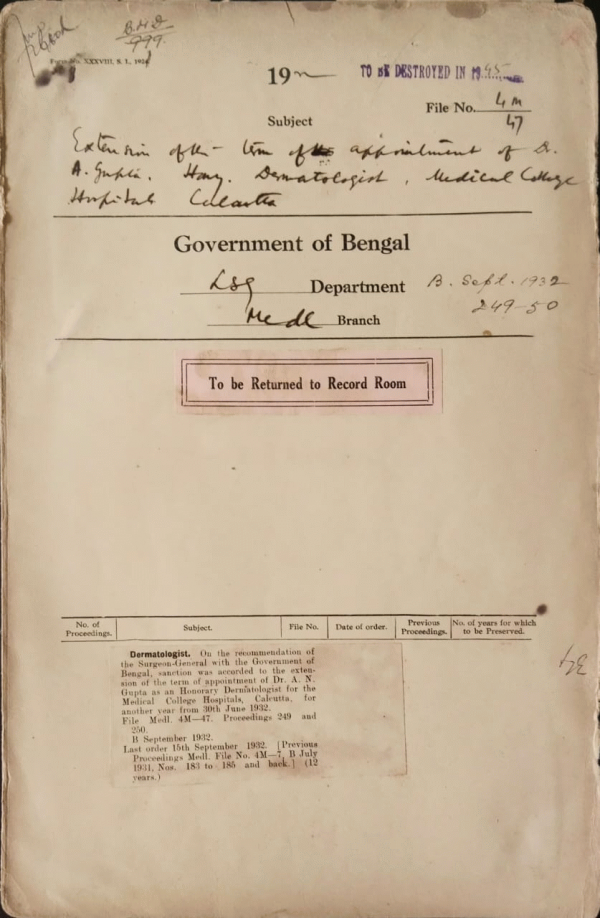 B.M.D
999.
Form No. XXXVIII, S. I., 192
19
TO BE DESTROYED IN 1945
File No. 4M
47
Subject
Extension of the term of appointment of Dr.
A. Gupta. Hony. Dermatologist, Medical College
Hospitals Calcutta
Government of Bengal
LSG Department B. Sept. 1932
249-50
Medl Branch
To be Returned to Record Room
No. of Proceedings. Subject. File No. Date of order. Previous Proceedings. No. of years for which to be Preserved.
Dermatologist. On the recommendation of
the Surgeon-General with the Government of
Bengal, sanction was accorded to the exten-
sion of the term of appointment of Dr. A. N.
Gupta as an Honorary Dermatologist for the
Medical College Hospitals, Calcutta, for
another year from 30th June 1932.
File Medl. 4M—47. Proceedings 249 and
250.
B September 1932.
Last order 15th September 1932. [Previous
Proceedings Medl. File No. 4M—7, B July
1931, Nos. 183 to 185 and back.] (12
years.)